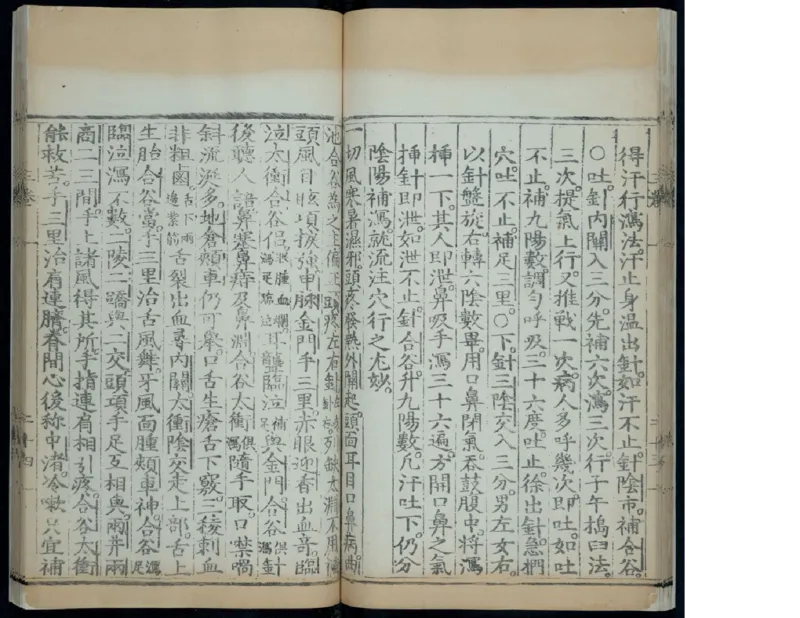 得汗行瀉法汗止身溫出針如汗不止針陰市補合谷。
○吐針內關入三分。先補六次。瀉三次。行子午搗臼法。
三次。提氣上行。又推戰一次。病人多呼幾次即吐。如吐
不止。補九陽數。調勻呼吸。三十六度吐止。徐出針。急捫
穴。吐不止。補足三里。○下。針三陰交。入三分。男左女右。
以針盤旋右轉六陰數畢。用口鼻閉氣。吞鼓腹中。將瀉
插一下。其人即泄。鼻吸手瀉三十六遍。方開口鼻之氣
插針即泄。如泄不止。針合谷。升九陽數。凡汗吐下。仍分
陰陽補瀉。就流注穴行之。尤妙。
一切風寒暑濕邪。頭疼發熱。外關起。頭面耳目口鼻病。曲
池合谷為之主。偏正頭疼左右針列缺太淵不用補
頭風目眩項捩強。申脈金門手三里。赤眼迎香出血奇。臨
泣太衝合谷侶。耳聾臨泣與金門。合谷俱針
後聽人語。鼻塞鼻痔及鼻淵。合谷太衝俱瀉隨手取。口噤喎
斜流涎多。地倉頰車仍可舉。口舌生瘡舌下竅。三稜刺血
非粗鹵。舌下兩邊紫筋舌裂出血尋內關。太衝陰交走上部。舌上
生胎合谷當。手三里治舌風舞。牙風面腫頰車神。合谷瀉足
臨泣瀉不數。二陵二蹻與二交。頭項手足互相與。兩井兩
商二三間。手上諸風得其所。手指連肩相引疼。合谷太衝
能救苦。手三里治肩連臍。脊間心後稱中渚。冷嗽只宜補